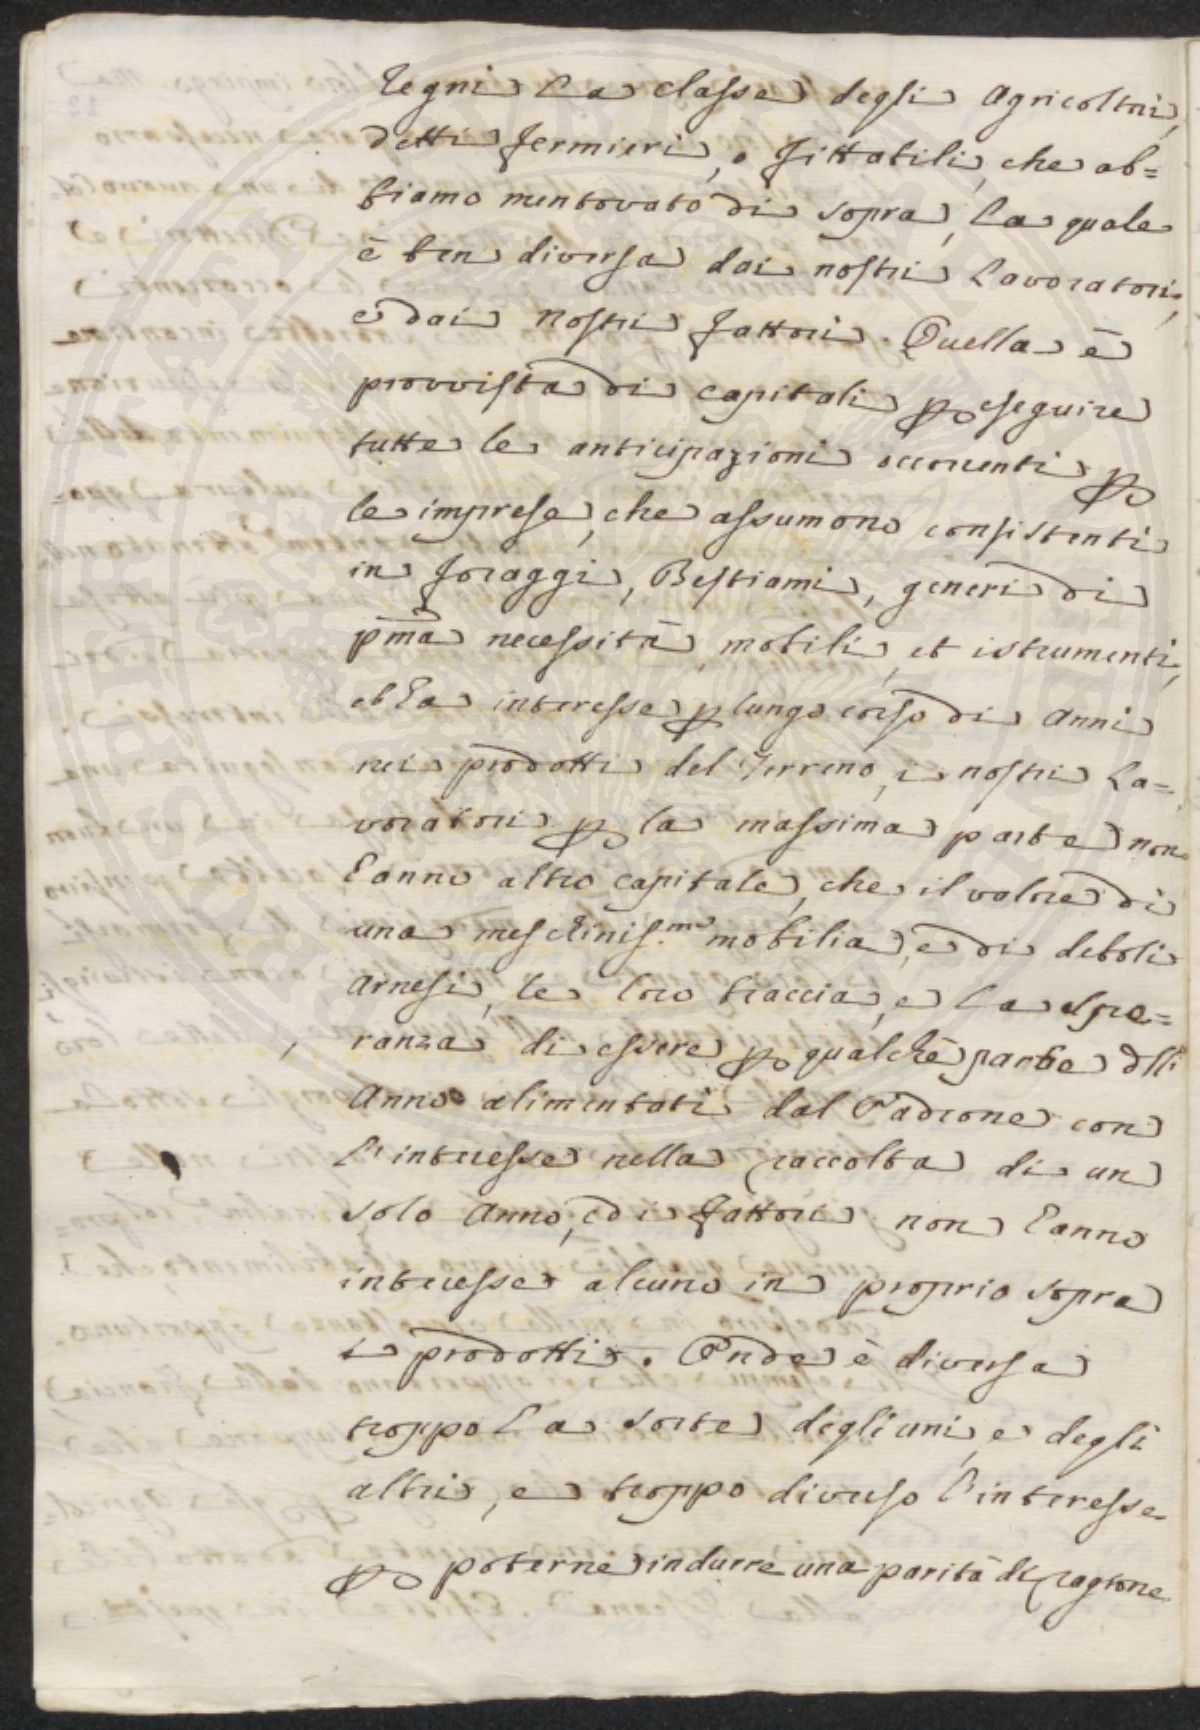 Regni la classe degli Agricoltori,
detti Fermieri, o Fittabili, che ab=
biamo mentovato di sopra, la quale
è ben diversa dai nostri Lavoratori,
e dai nostri Fattori. Quella è
provvista di capitali p eseguire
tutte le anticipazioni occorrenti p
le imprese, che assumono consistenti
in Foraggi, Bestiami, generi di
pma necessità, mobili, et istrumenti,
et ha interesse p lungo corso di Anni
nei prodotti del Terreno, i nostri La=
voratori p la massima parte non
hanno altro capitale, che il valore di
una meschinis.ma mobilia, e di deboli
Arnesi, le loro braccia, e la spe=
ranza di essere p qualche parte dll
Anno alimentati dal Padrone con
l'interesse nella raccolta di un
solo Anno, ed i Fattori non hanno
interesse alcuno in proprio sopra
i prodotti. Onde è diversa
troppo la sorte degli uni, e degli
altri, e troppo diverso l'interesse
p poterne indurre una parità di ragione